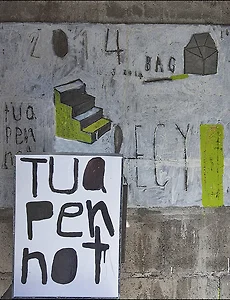 2014
BAG
ECY
tua
pen
not
TUA
Pen
not